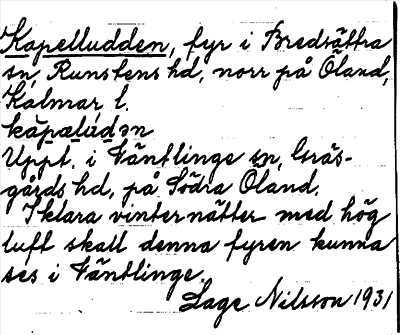 Kapelludden, fyr i Bredsättra
sn, Runstens hd, norr på Öland,
Kalmar l.
kapæludən
Uppt. i Ventlinge sn, Gräs-
gårds hd, på Södra Öland.
I klara vinternätter med hög
luft skall denna fyren kunna
ses i Ventlinge.
Lage Nilsson 1931